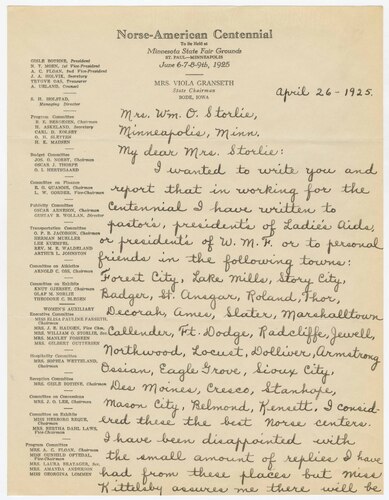 Norse-American Centennial
To Be Held at
Minnesota State Fair Grounds
ST. PAUL—MINNEAPOLIS
June 6-7-8-9th, 1925
MRS. VIOLA GRANSETH
State Chairman
BODE, IOWA
GISLE BOTHNE, President
N. T. MOEN, 1st Vice-President
A. C. FLOAN, 2nd Vice-President
J. A. HOLVIK, Secretary
TRYGVE OAS, Treasurer
A. UELAND, Counsel
S. H. HOLSTAD,
Managing Director
Program Committee
H. ASKELAND, Secretary
CARL D. KOLSET
O. H. SLETTEN
H. E. MAIDEN
Budget Committee
JOS. G. NORBY, Chairman
OSCAR J. THORPE
O. I. HERTSGAARD
Committee on Finance
E. G. QUAMME, Chairman
Vice-Chairman
Publicity Committee
OSCAR ARNESON, Chairman
GUSTAV B. WOLLAN, Director
Transportation Committee
O. P. B. JACOBSON, Chairman
HERMAN MUELLER
LEE KUEMPEL
REV. M. E. WALDELAND
ARTHUR L. JOHNSTON
Committee on Athletics
ARNOLD C. OSS, Chairman
Committee on Exhibits
KNUT GJERSET, Chairman
OLAF M. NORLIE
THEODORE C. BLEGEN
WOMEN'S AUXILIARY
Executive Committee
MISS ELISA PAULINE FARSETH,
Chairman
MRS. WILLIAM O. STORLIE, Sec.
MRS. MANLEY FOSSEEN
MRS. GILBERT GUTTERSEN
Hospitality Committee
MRS. SOPHIA WETTELAND,
Chairman
Reception Committee
MRS. GISLE BOTHNE, Chairman
Committee on Concessions
MRS. J. O. LEE, Chairman
Committee on Exhibits
MISS HERBORG REQUE,
Chairman
MRS. BERTHA DAHL LAWS,
Vice-Chairman
Program Committee
MRS. A. C. FLOAN, Chairman
MISS GUNHILD OFTEDAL,
Vice-Chairman
MRS. LAURA BRATAGER, Sec.
MRS. AMANDA AMDERSON
MISS GEORGINA LOMMEN
April 26-1925.
Mrs. Wm. O. Storlie,
Minneapolis, Minn.
My dear Mrs. Storlie:
I wanted to write you and
report that in working for the
Centennial I have written to
pastors, president's of Ladie's Aids,
or president's of W. M. F. or to personal
friends in the following towns:
Forest City, Lake Mills, Story City,
Badger, St. Ansgar, Roland, Thor,
Decorah, Ames, Slater, Marshalltown
Callender, Ft. Dodge, Radcliffe, Jewell,
Northwood, Locust, Dolliver, Armstrong
Ossian, Eagle Grove, Sioux City,
Des Moines, Cresco, Stanhope,
Mason City, Belmond, Kensett, I consid-
ered these the best Norse centers.
I have been disappointed with
the small amount of replies I have
had from these places but Miss
Kittelsby assures me there will be